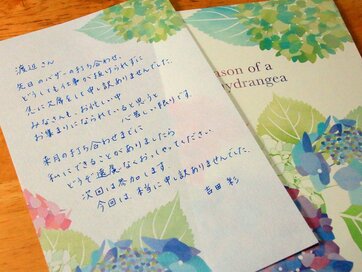 渡辺さん
先日のバザーの打ち合わせ、
どうしても仕事が抜けられずに
急に欠席をして申し訳ありませんでした。
みなさんも、お忙しい中
お集まりになられていると思うと
心苦しい限りです。
来月の打ち合わせまでに
私にできることがありましたら
どうぞ遠慮なくおっしゃってください
次回は参加します。
今回は、本当に申し訳ありませんでした。
吉田 彩
ason of a
ydrangea